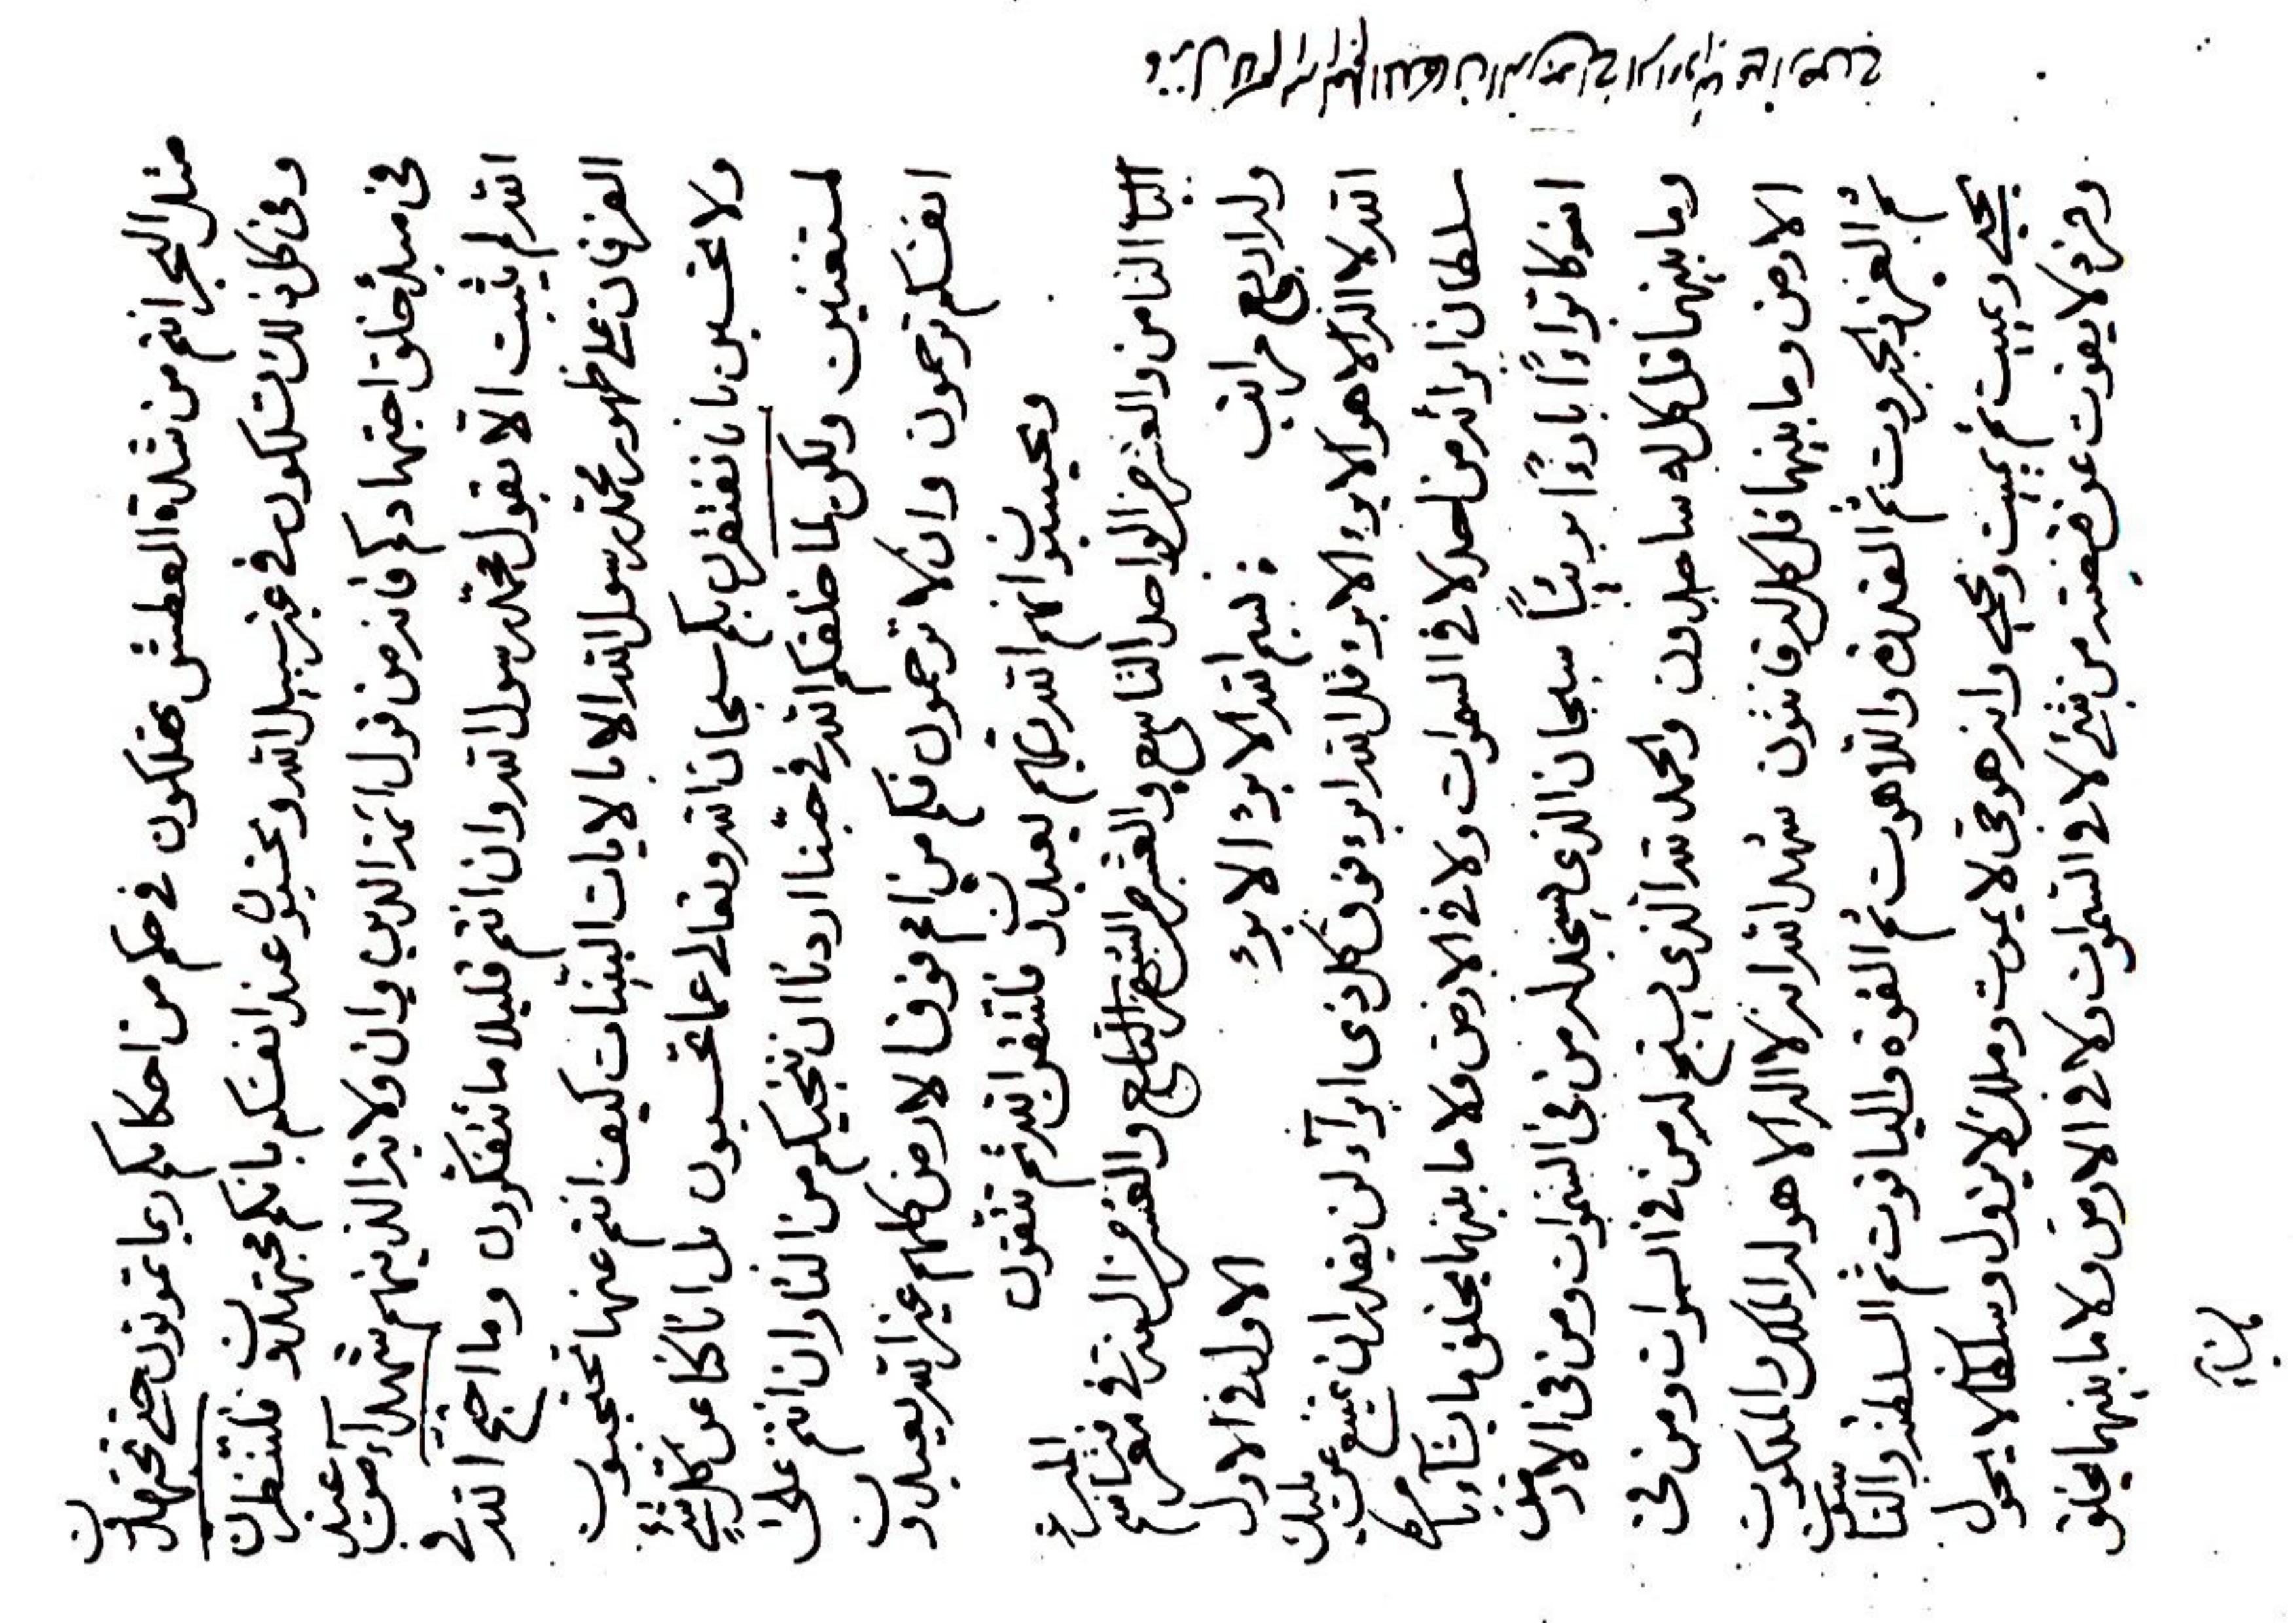 مثل البحر انتم من شدة العطش تهلكون في حكم من احكامكم ربما تموتون حتى تجتهدون
وفي كل ذلك تسلكون في غير سبيل الله وتحسبون عند انفسكم بانكم مجتهدون فلتنظرن
في مبدء خلق اجتهادكم فانه من قول ائمة الدين وان ولاية الذينهم شهداء من عند
الله لم يثبت الا بقول محمد رسول الله وان انتم قليلا ما تتفكرون وما احتج الله في
الفرقان على ظهور محمد رسول الله الا بالايات البينات كيف انتم عنها تحتجبون
ولا تحسبن بانا نفتقرن بكم سبحان الله وتعالى عما تحسبون بل انا كنا عن كل شيء
لمستغنين ولكن لما خلقكم الله في حبنا اردنا ان ننجيكم من النار وان انتم على
انفسكم ترحمون وان لا ترحمون فكم من امم فوق الارض كلهم غير الله يعبدون
ويحسبون انهم الله ربهم يعبدون فلتتقن الله ثم تتقون
الباب الثامن والعشر من الواحد التاسع والعشر من السنين التاسع والعشر من العز في معرفة اسم
وله اربع مراتب الاول في الاول
بسم الله الابرء الابرء
الله لا اله الا هو الابرء الابرء قل الله ابرء فوق كل ذي ابراء لن يقدر ان يمتنع عن مليك
سلطان ابرائه من احد لا في السموات ولا في الارض ولا ما بينهما يخلق ما يشاء بامره
انه كان براءا بارءا بريئا سبحان الذي يسجد له من في السموات ومن في الارض
وما بينهما قل كل له ساجدون والحمد لله الذي يسبح له من في السموات ومن في
الارض وما بينهما قل كل له قانتون شهد الله انه لا اله الا هو له الملك والملكوت
ثم العز والجبروت ثم القدرة واللاهوت ثم القوة والياقوت ثم السلطنة والناسوت
يحيي ويميت ثم يميت ويحيي وانه هو حي لا يموت وملك لا يزول وسلطان لا يحول
وفرد لا يفوت عن قبضته من شيء لا في السموات ولا في الارض ولا ما بينهما يخلق